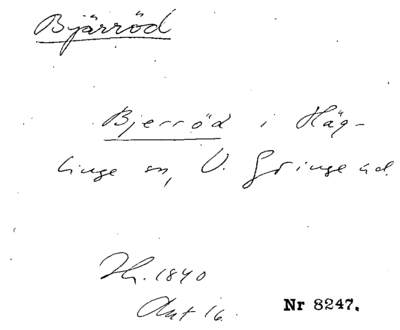 Bjärröd
Bjerröd i Häg-
linge sn, V. Göinge hd.
Th. 1840
Ant 16.
Nr 8247.